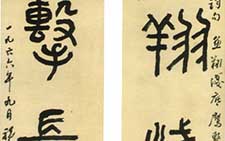 詞句 魚翔淺底鷹
翔淺
擊長
一九六六年九月